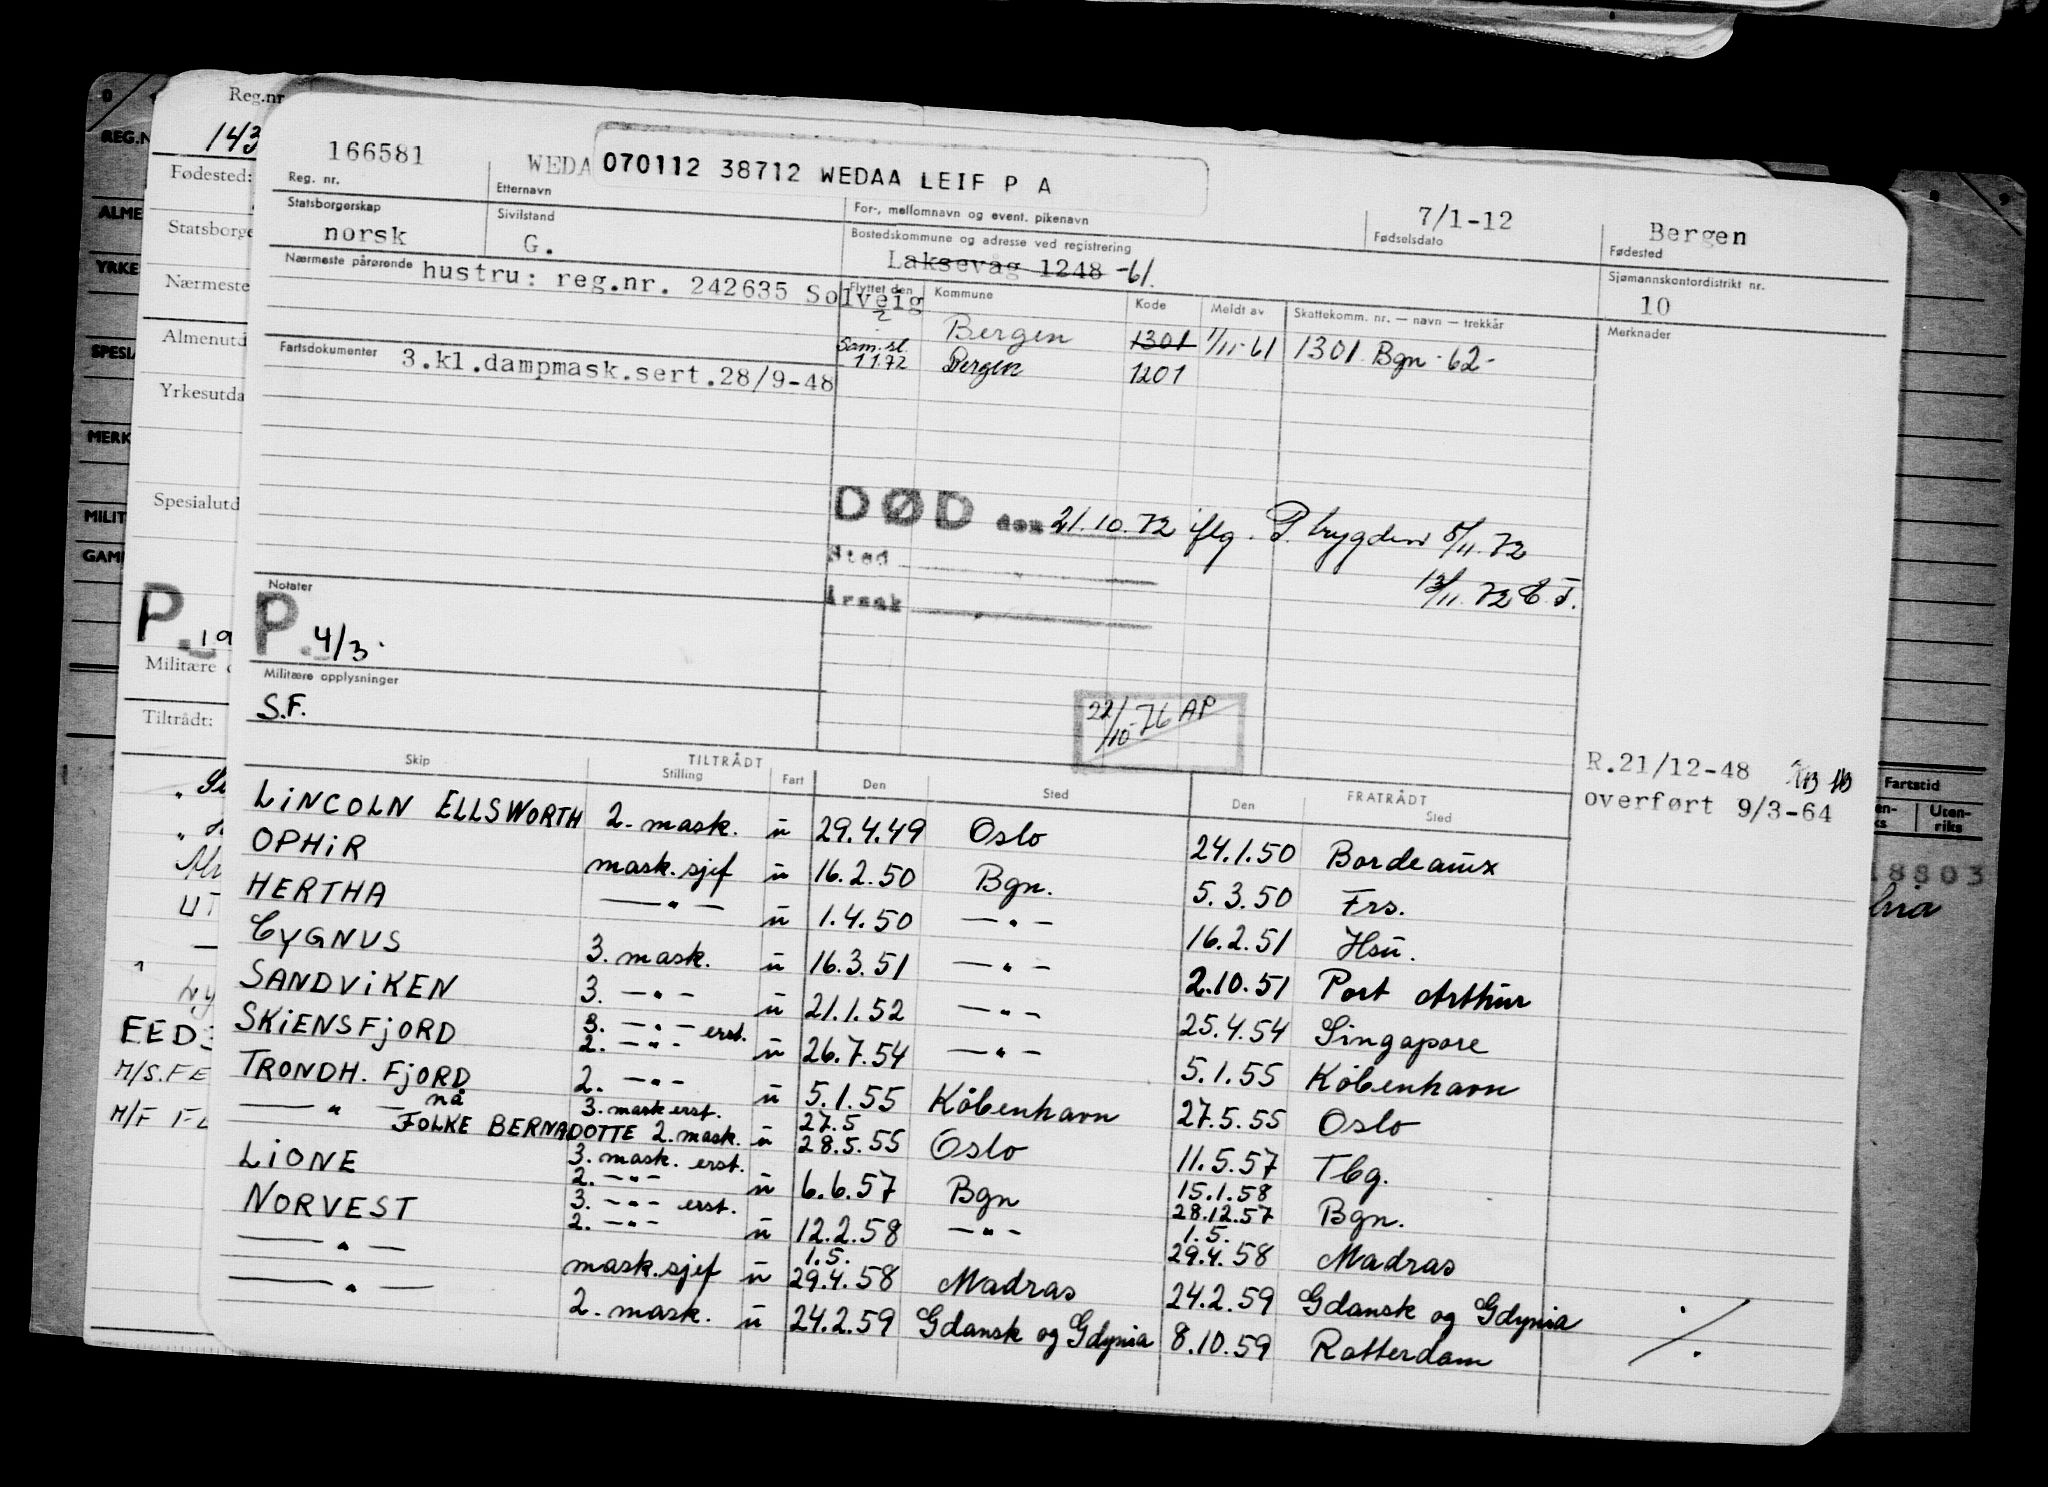 Reg.nr
REG.N
143
166581
WEDA 070112 38712 WEDAA LEIF P A
7/1-12
Bergen
Reg. nr.
Etternavn
For-, mellomnavn og event. pikenavn
Fødselsdato
Fødested
Fødested:
ALME
Statsborgerskap
norsk
Sivilstand
G.
Bostedskommune og adresse ved registrering
Laksevåg 1248 -61.
Sjømannskontordistrikt nr.
10
Statsborge
YRKE
Nærmeste pårørende
hustru: reg.nr. 242635 Solveig
Flyttet den
Kommune
Kode
Meldt av
Skattekomm. nr. — navn — trekkår
Merknader
Nærmeste
2 Bergen 1301 7/11-61 1301 Bgn -62-
Sam.sl.
1172 Bergen 1201
Almenutd
SPESIA
Fartsdokumenter
3.kl.dampmask.sert.28/9-48
Yrkesutda
MERK
Spesialutd
MILIT
GAM
DØD den 21.10.72 iflg. P. trygden 8/11.72
Sted
13/11.72 E.T.
Årsak
Notater
P. 19
P. 4/3.
Militære o
Militære opplysninger
S.F.
22/10-76 AP
Tiltrådt:
R.21/12-48
overført 9/3-64
Fartstid
Uten-
riks
18803
Skip
TILTRÅDT
Stilling
Fart
Den
Sted
FRATRÅDT
Den
Sted
LINCOLN ELLSWORTH 2. mask. u 29.4.49 Oslo 24.1.50 Bordeaux
OPHIR mask.sjef u 16.2.50 Bgn. 5.3.50 Frs.
HERTHA —"— u 1.4.50 —"— 16.2.51 Hsu.
CYGNUS 3. mask. u 16.3.51 —"— 2.10.51 Port Arthur
SANDVIKEN 3. —"— u 21.1.52 —"— 25.4.54 Singapore
SKIENSFJORD 3. —"— erst.
2. —"— u 26.7.54 —"— 5.1.55 København
TRONDH. FJORD 2. —"— u 5.1.55 København 27.5.55 Oslo
—"— nå 3. mask erst. 27.5
FOLKE BERNADOTTE 2. mask. u 28.5.55 Oslo 11.5.57 Tbg.
LIONE 3. mask. erst. 15.1.58
2. —"— u 6.6.57 Bgn 28.12.57 Bgn.
NORVEST 3. —"— erst. 1.5.
2. —"— u 12.2.58 —"— 29.4.58 Madras
—"— 1.5.
mask.sjef u 29.4.58 Madras 24.2.59 Gdansk og Gdynia
—"— 2. mask. u 24.2.59 Gdansk og Gdynia 8.10.59 Rotterdam
EED
M/S.FE
M/F